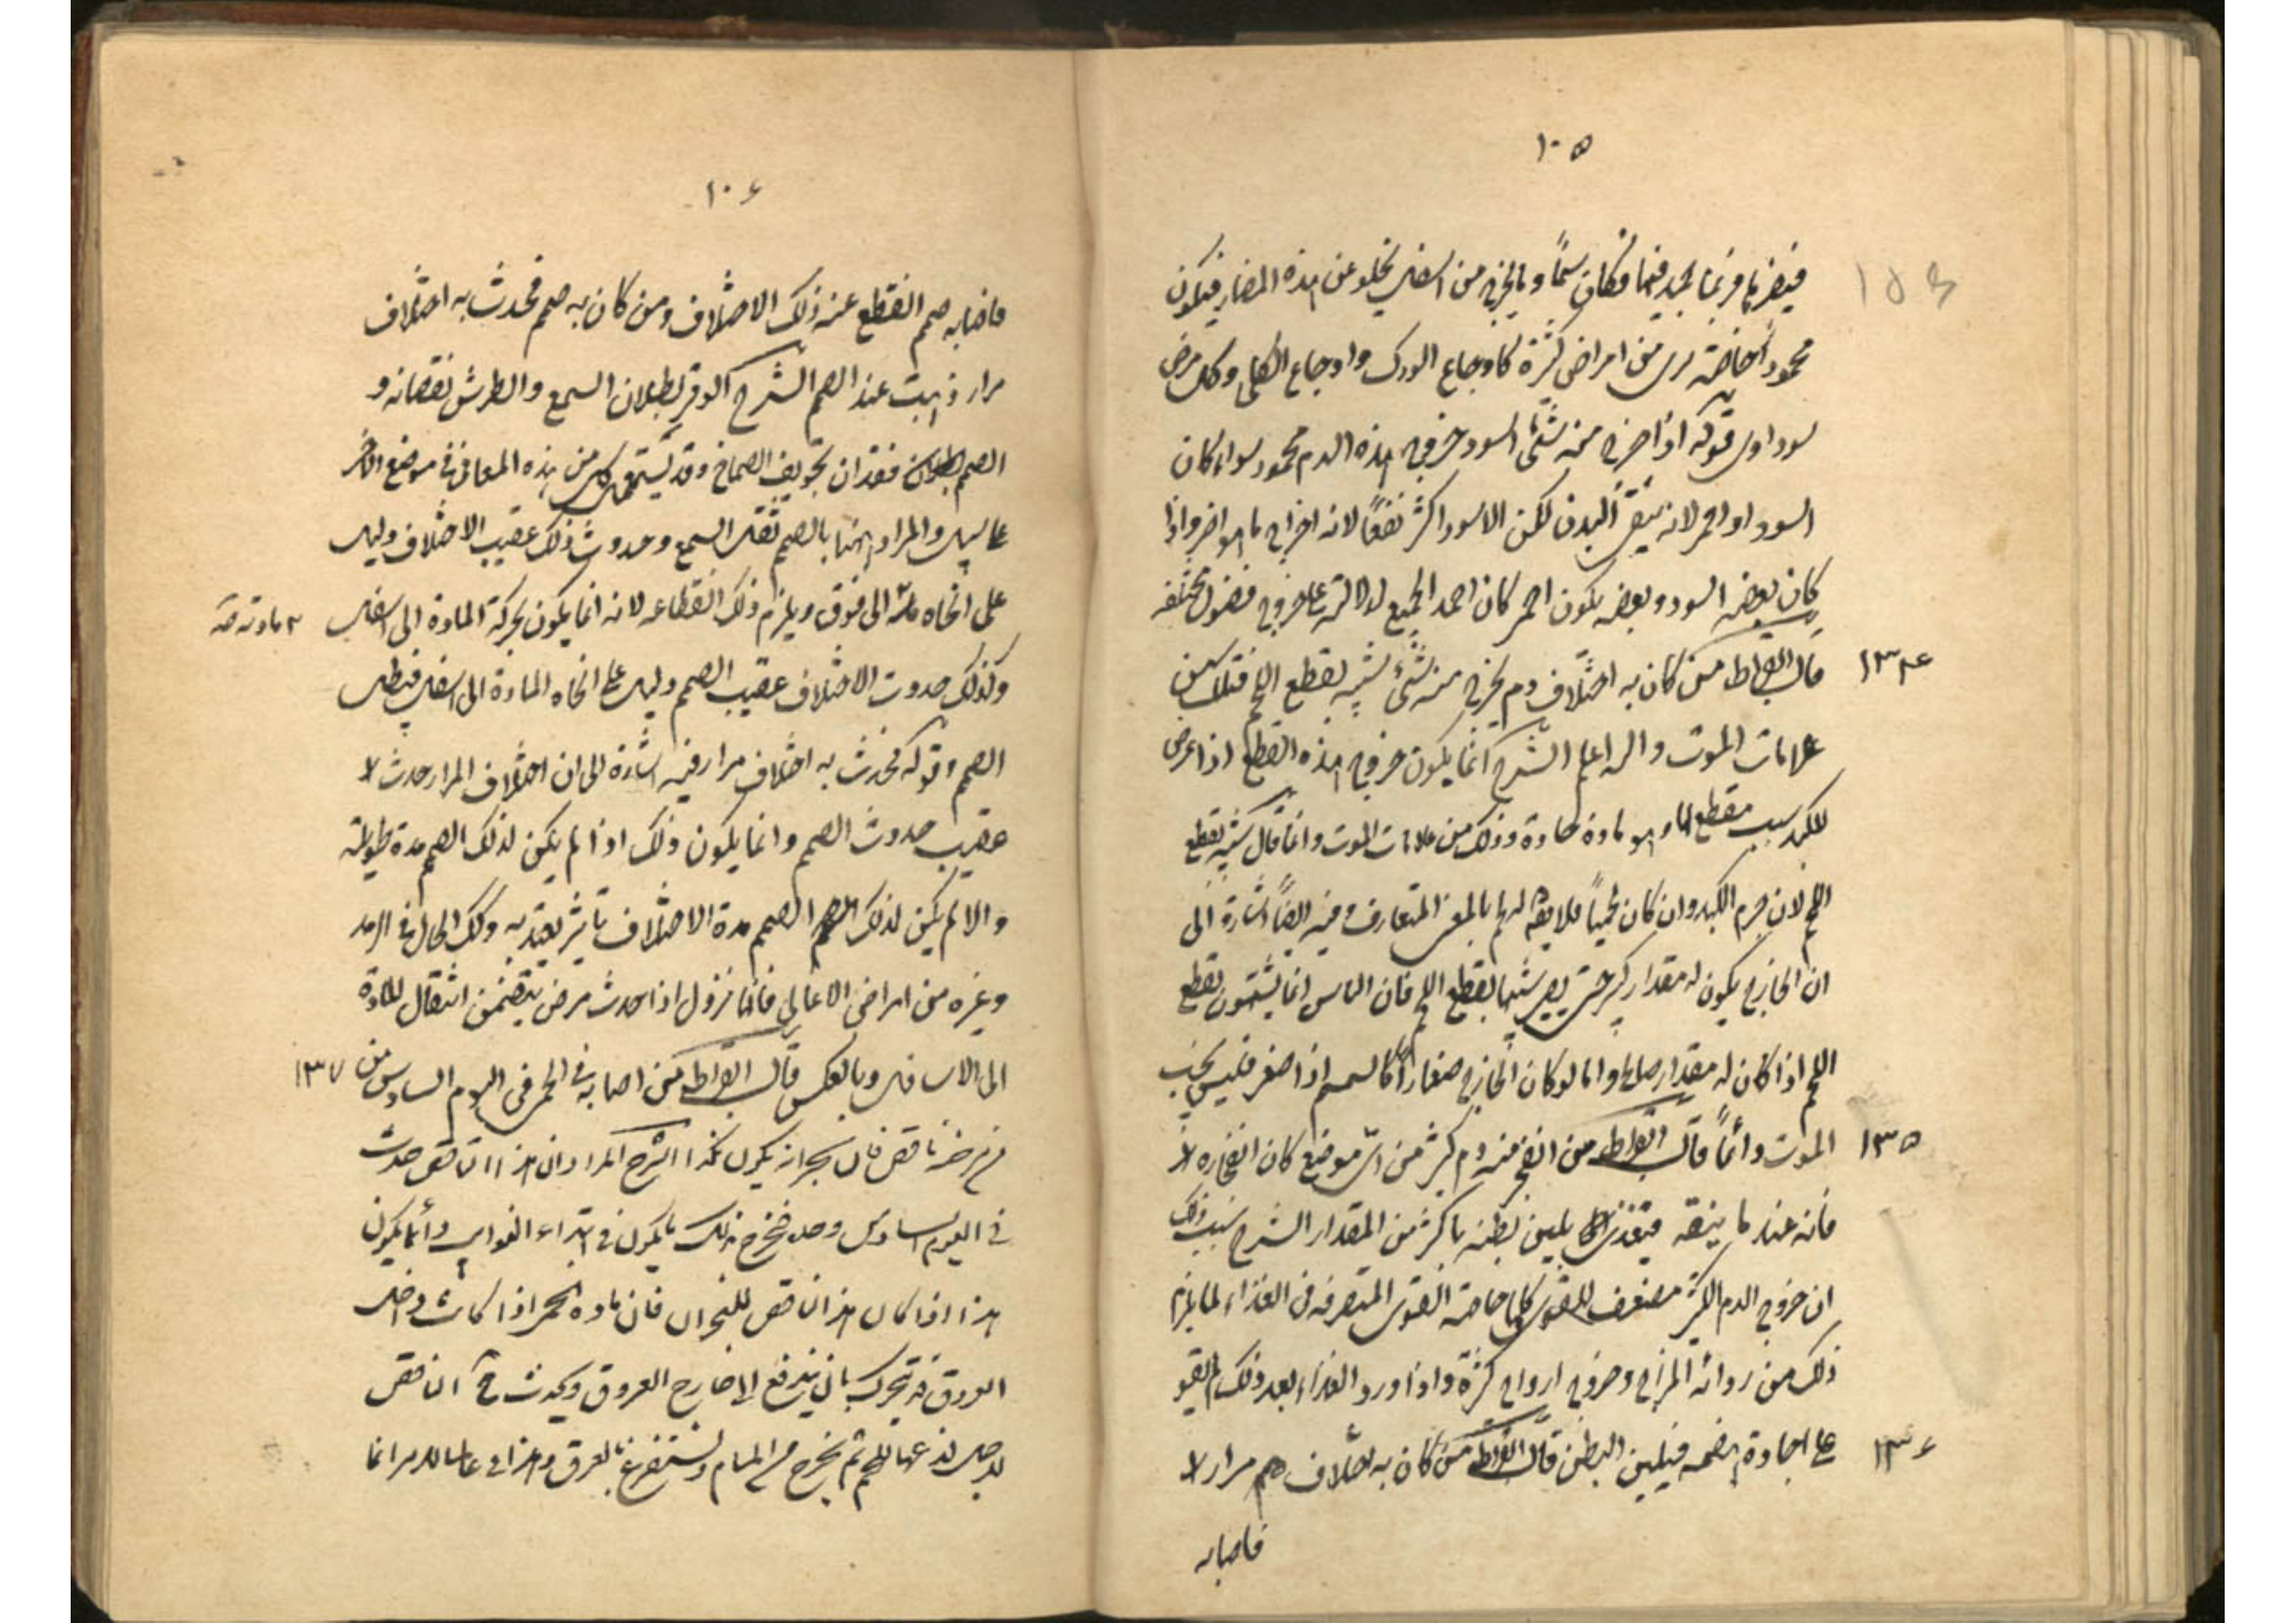 ١٠٥
فيضر بها وربما لحج فيها فكان سما وما يخرج من اسفل يخلو عن هذه المضار فيكون
محمودا خاصة من امراض كثيرة كاوجاع الورك واوجاع الكلى وكل مرض
سوداوى قوله اذا خرج منه شئ اسود خروج هذه الدم محمود سواء كان
اسود او احمر لانه ينقى البدن لكن الاسود اكثر نفعا لانه اخراج ما هو اضر واذا
كان بعضه اسود وبعضه يكون احمر كان احمد الجميع لدلالته على خروج فضول مختلفه
١٣٤
قال ابقراط من كان به اختلاف دم يخرج منه شئ شبيه بقطع اللحم فتلك من
علامات الموت والله اعلم الشرح انما يكون خروج هذه القطع اذا عرض
للكبد سبب مقطع لها وهو مادة حادة وذلك من علامات الموت وانما قال شبيه بقطع
اللحم لان جرم الكبد وان كان لحميا فلا يقال له لحم بالمعنى المتعارف وفيه ايضا اشارة الى
ان الخارج يكون له مقدار كبير حتى يصير شبيها بقطع اللحم فان الناس انما يسمون بقطع
اللحم اذا كان له مقدار صالح واما لو كان الخارج صغارا كالسمسم اذا صغر فليس يجب
١٣٥
الموت دائما قال ابقراط من انفجر منه دم كثير من اى موضع كان انفجاره
فانه عند ما ينقه فيغتذى يلين بطنه باكثر من المقدار الشرح سبب ذلك
ان خروج الدم الكثير مضعف للقوى كلها خاصة القوى المتصرفه فى الغذاء لما يلزم
ذلك من رداءة المزاج وخروج ارواح كثيرة واذا ورد الغذاء بعد ذلك لم يقو
١٣٦
على اجادة هضمه فيلين البطن قال ابقراط من كان به اختلاف مرار
فاصابه
١٠٦
فاصابه صمم انقطع عنه ذلك الاختلاف ومن كان به صمم فحدث به اختلاف
مرار ذهب عنه الصمم الشرح الوقر بطلان السمع والطرش نقصانه و
الصمم فقدان تجويف الصماخ وقد يستعمل كل من هذه المعانى فى موضع الآخر
على سبيل والمراد هنا بالصمم ثقل السمع وحدوث ذلك عقيب الاختلاف دليل
على اتجاه الى فوق ويلزم ذلك انقطاعه لانه انما يكون بحركة المادة الى اسفل
وكذلك حدوث الاختلاف عقيب الصمم دليل على اتجاه المادة الى اسفل فيبطل
الصمم وقوله فحدث به اختلاف مرار فيه اشارة الى ان اختلاف المرار حدث
عقيب حدوث الصمم وانما يكون ذلك اذا لم يكن لذلك الصمم مدة طويلة
والا لم يكن لذلك الصمم مدة الاختلاف تاثير يعتد به وكذلك الحال فى الرمد
وغيره من امراض الاعالى فانها تزول اذا حدث مرض يتضمن انتقال المادة
الى الاسافل وبالعكس قال ابقراط من اصابه فى الحمى فى اليوم السادس من
١٣٧
مرضه نافض فان بحرانه يكون نكدا الشرح المراد ان هذا النافض حدث
فى اليوم السادس وحده فخرج بذلك ما يكون فى ابتداء النوايب وانما يكون
هذا اذا كان هذا النافض للبحران فان مادة الحمى اذا كانت داخل
العروق فتتحرك بان يندفع الى خارج العروق ويحدث ح النافض
لاجل لذعها للحم ثم يخرج من المسام ويستفرغ بالعرق وهذا فى غالب الامر انما